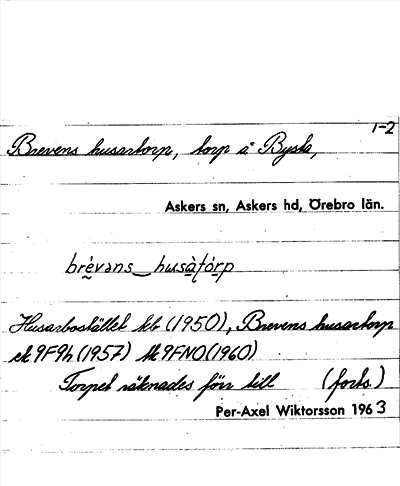 1-2
Brevens husartorp, torp å Bysta,
Askers sn, Askers hd, Örebro län.
brévəns husàtórp
Husarbostället kb (1950), Brevens husartorp
ek 9F9h (1957) tk 9FNO (1960)
Torpet räknades förr till (forts.)
Per-Axel Wiktorsson 1963